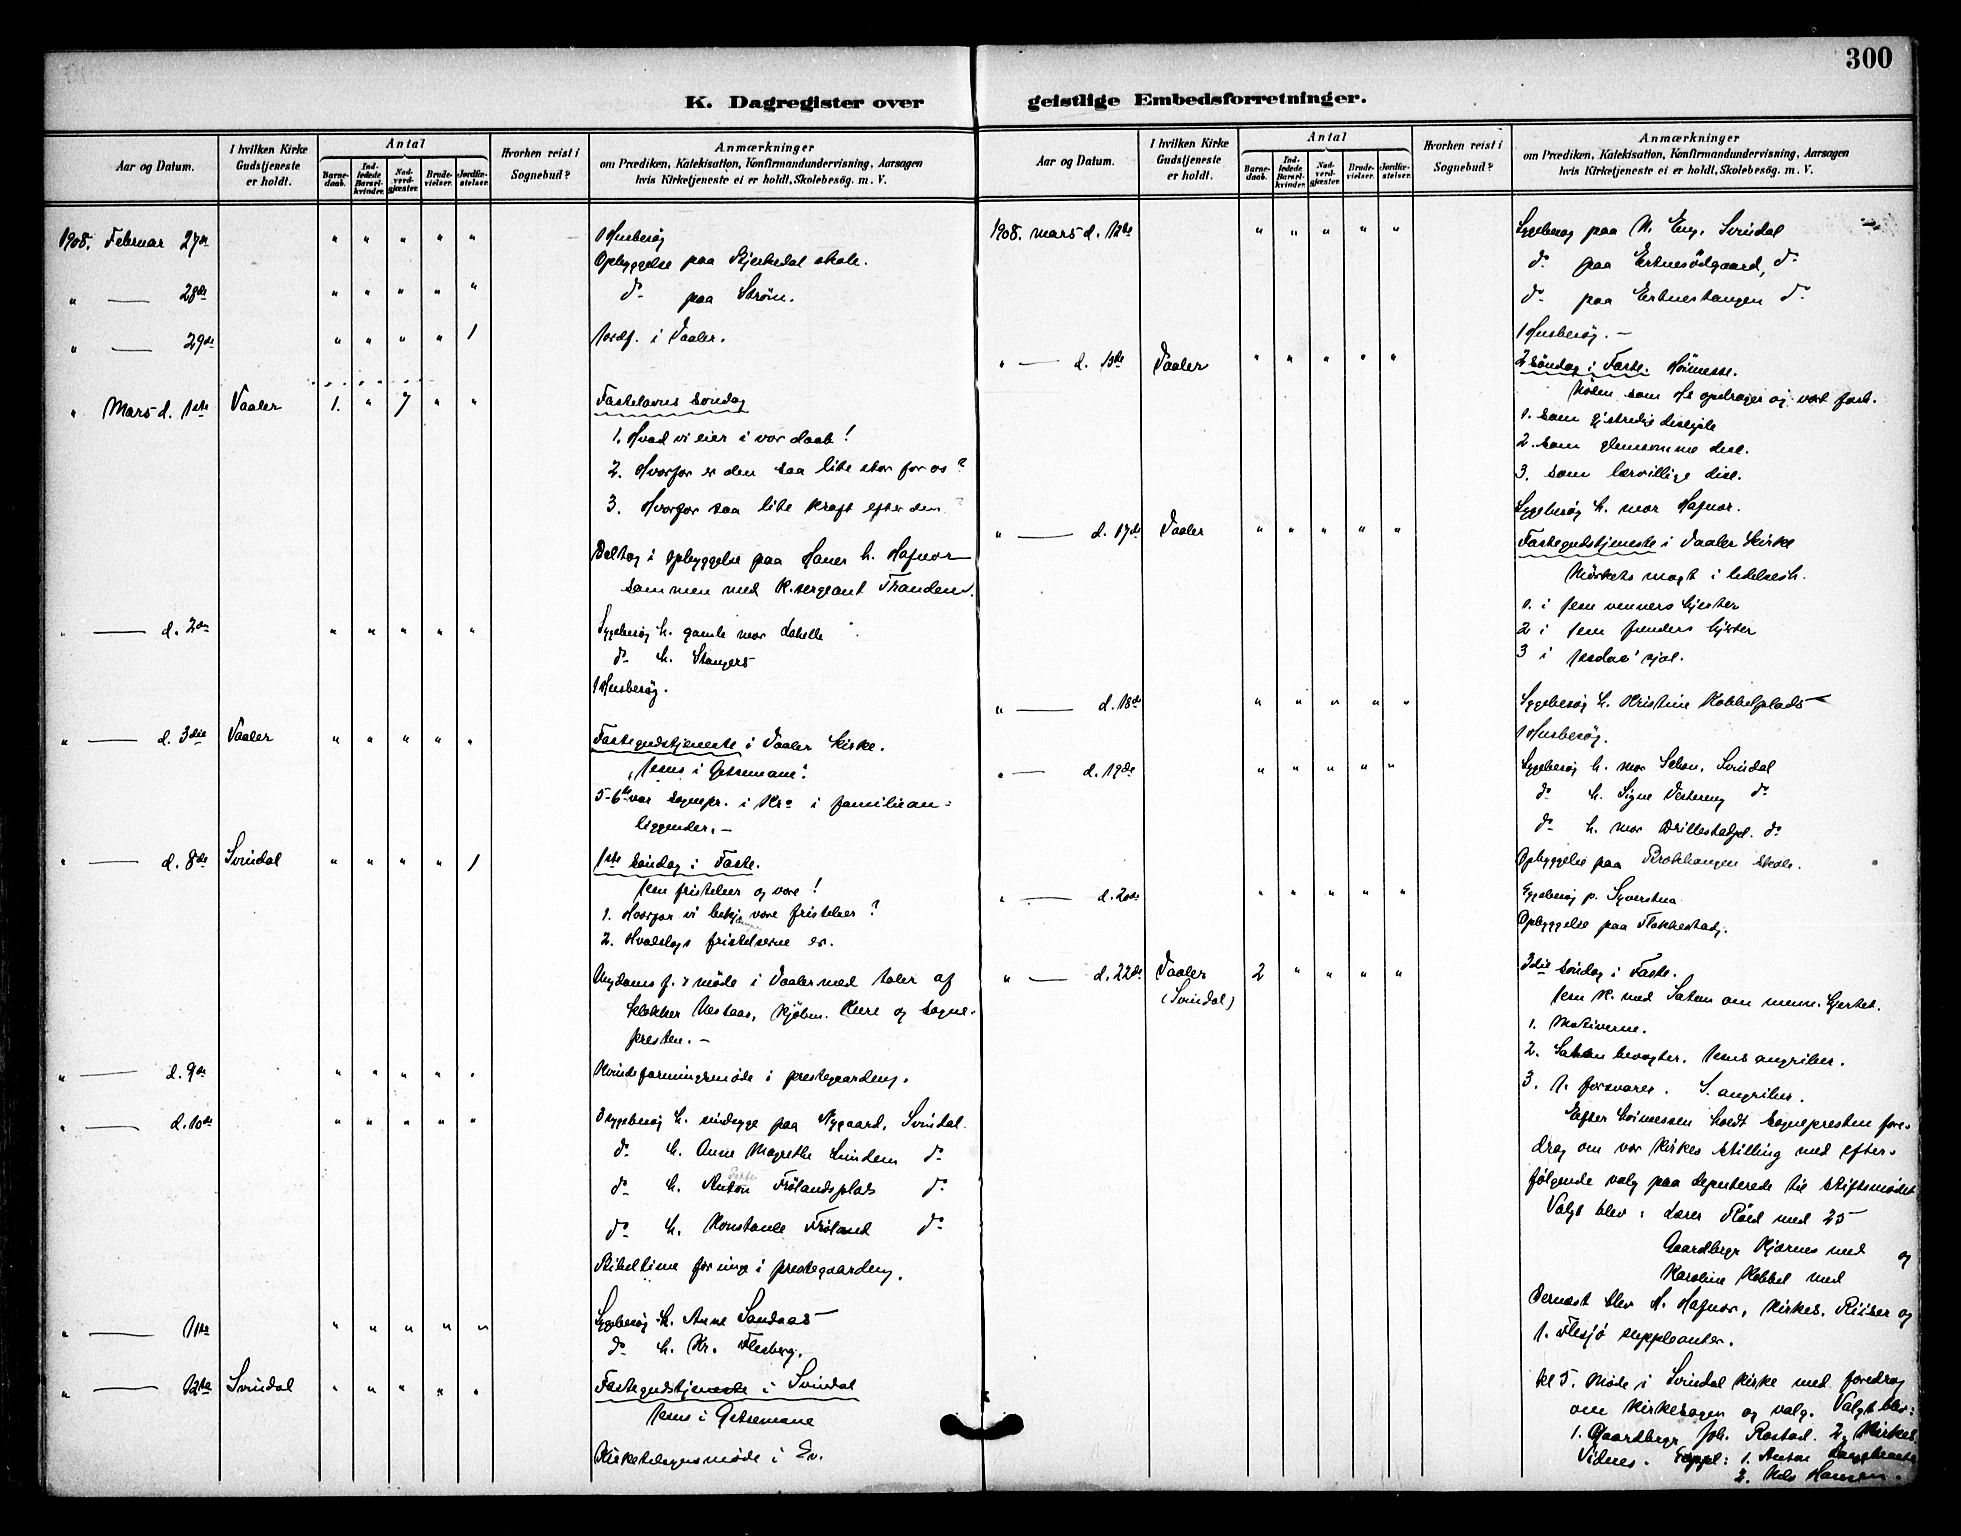 300
K. Dagregister over geistlige Embedsforretninger.
Aar og Datum.
I hvilken Kirke Gudstjeneste er holdt.
Antal
Barnedaab.
Indledede Barselkvinder.
Nadverdgjæster.
Brudevielser.
Jordfæstelser.
Hvorhen reist i Sognebud?
Anmærkninger
om Prædiken, Katekisation, Konfirmandundervisning, Aarsagen
hvis Kirketjeneste ei er holdt, Skolebesøg. m. V.
1908. Februar 27de " " " " " 1 Husbesøg
Opbyggelse paa Kjerkedal skole.
" — 28de " " " " " do paa Strøm.
" — 29de " " " " 1 Jordf. i Vaaler.
" Mars d. 1ste Vaaler 1. " 7 " " Fastelavns søndag
1. Hvad vi eier i vor daab!
2. Hvorfor er den saa lite stor for os?
3. Hvorfor saa lite kraft efter den
Deltog i opbyggelse paa Haner h. Hafnor
sammen med K.sergeant Tranden.
" — d. 2den " " " " " Sygebesøg h. gamle mor
do h. Stangers
1 Husbesøg.
" — d. 3die Vaaler " " " " " Fastegudstjeneste i Vaaler kirke.
"Jesus i Getsemane".
5-6te var sognepr. i Kra i familiean=
liggender. —
" — d. 8de Svindal " " " " 1 1ste søndag i Faste.
Jesu fristelser og vore!
1. Hvorfor vi bekj. vore fristelser?
2. Hvadslags fristelserne er.
Ungdomsf.s møde i Vaaler med taler af
klokker Nestaas, kjøbm. Kure og sogne-
presten. —
" — d. 9de " " " " " Kvindeforeningsmøde i prestegaarden.
" — d. 10de " " " " " Sygebesøg h. paa Nygaard, Svindal.
do h. Anne Magrethe Lundem do
do h. Anton Frølandsplads do
do h. Konstanse Frøland do
Bibeltime for unge i prestegaarden.
" — 11te " " " " " Sygebesøg h. Anne Sandaas
do h. Kr. Flesberg.
" — 12te Svindal " " " " " Fastegudstjeneste i Svindal
Jesus i Getsemane
Kirketilsynsmøde i Sv.
Aar og Datum.
I hvilken Kirke Gudstjeneste er holdt.
Antal
Barnedaab.
Indledede Barselkvinder.
Nadverdgjæster.
Brudevielser.
Jordfæstelser.
Hvorhen reist i Sognebud?
Anmærkninger
om Prædiken, Katekisation, Konfirmandundervisning, Aarsagen
hvis Kirketjeneste ei er holdt, Skolebesøg. m. V.
1908. mars d. 12te " " " " " Sygebesøg paa N. Eng. Svindal
do paa Ertnesødgaard, do
do paa Ertnestangen do
1 Husbesøg. —
" — d. 15de Vaaler " " " " " 2 søndag i Faste. Høimesse.
som opdrager og vort
1. som
2. som
3. som lærvillige disc.
Sygebesøg h. mor Hafnor.
" — d. 17de Vaaler " " " " " Fastegudstjeneste i Vaaler kirke
Mørkets magt i lidelsesh.
1. i Jesu venners hjerter
2 i Jesu fienders hjerter
3 i Judas' sjæl.
" — d. 18de " " " " " Sygebesøg h. Kristine Kobbelplads
1 Husbesøg.
" — d. 19de " " " " " Sygebesøg h. mor Svindal
do h. Signe Vestereng do
do h. mor Brillestadpl. do
Opbyggelse paa skole.
" — d. 20de " " " " " Sygebesøg p. Syverstua
Opbyggelse paa Flakkestad.
" — d. 22de Vaaler 2 " " " " 3die søndag i Faste.
(Svindal) Jesu K. med Satan om menn. hjertet.
1. Motiverne.
2. Satan bevogter. Jesus angriber.
3. J. forsvarer. S. angriber.
Efter høimessen holdt sognepresten fore-
drag om vor kirkes stilling med efter-
følgende valg paa deputerede til stiftsmødet
Valgt blev: Lærer Røed med 25
Gaardbrgr Kjærnes med og
Karoline Kobbel med
Dernæst blev H. Hafnor, kirkes. Riiser og
J. Flesjø suppleanter.
kl 5. Møde i Svindal kirke med foredrag
om kirkesagen og valg. Valgt blev:
1. Gaardbrgr Joh. Rostad. 2. Kirkes.
Vidnes. Suppl: 1. Anton
2. Nils Hansen.